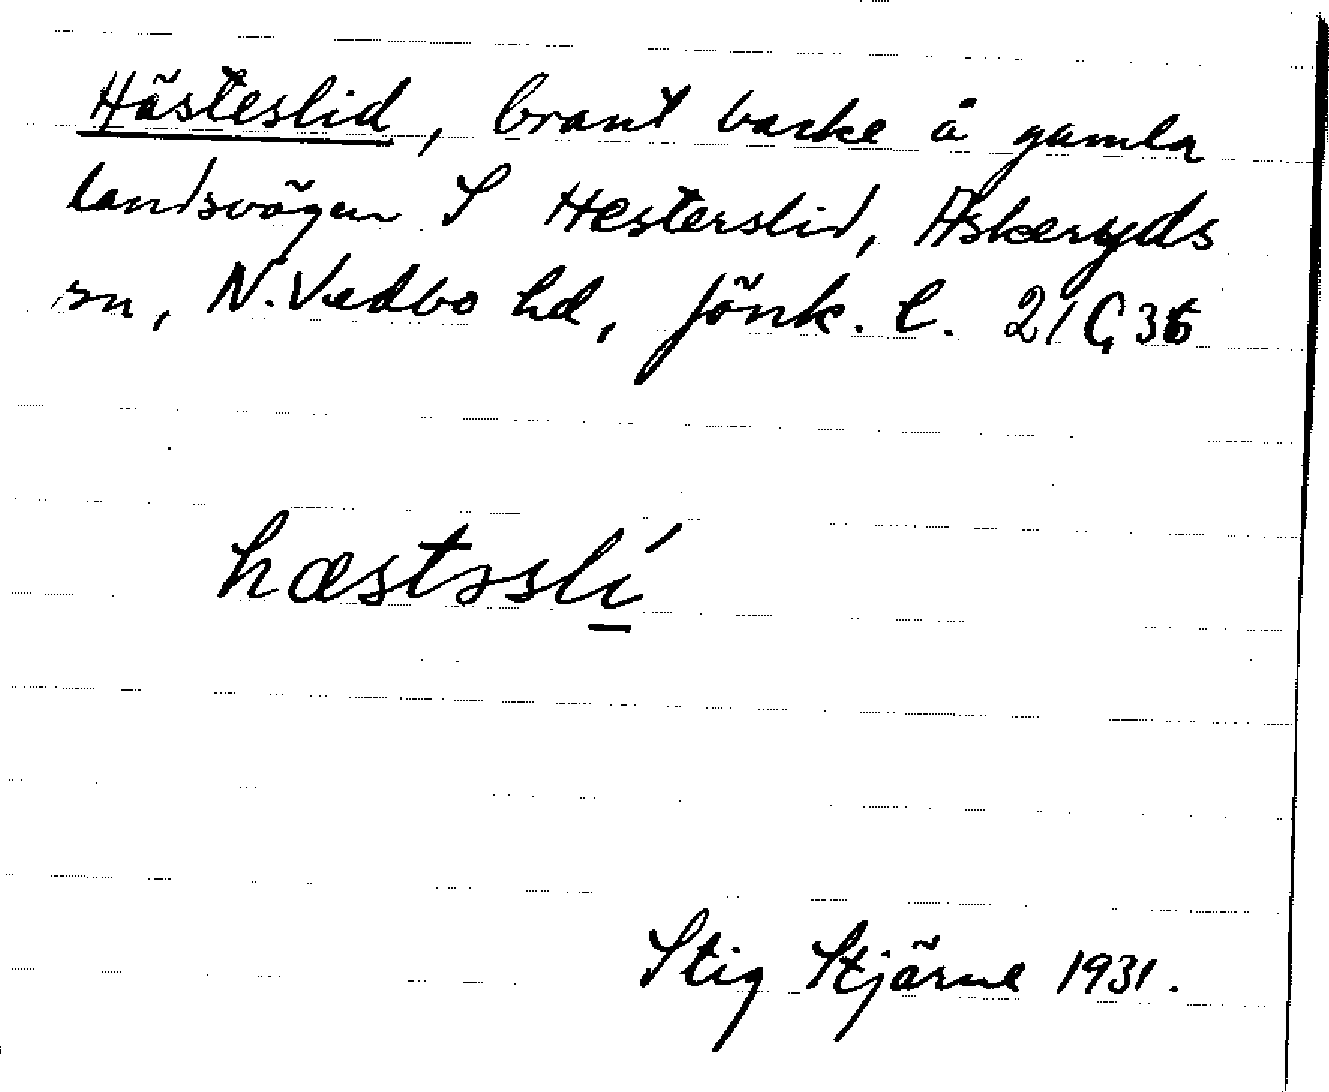 Hästeslid, brant backe å gamla
landsvägen S Hesterslid, Askeryds
sn, N. Vedbo hd, Jönk. l.
hæstəslí
Stig Stjärne 1931.